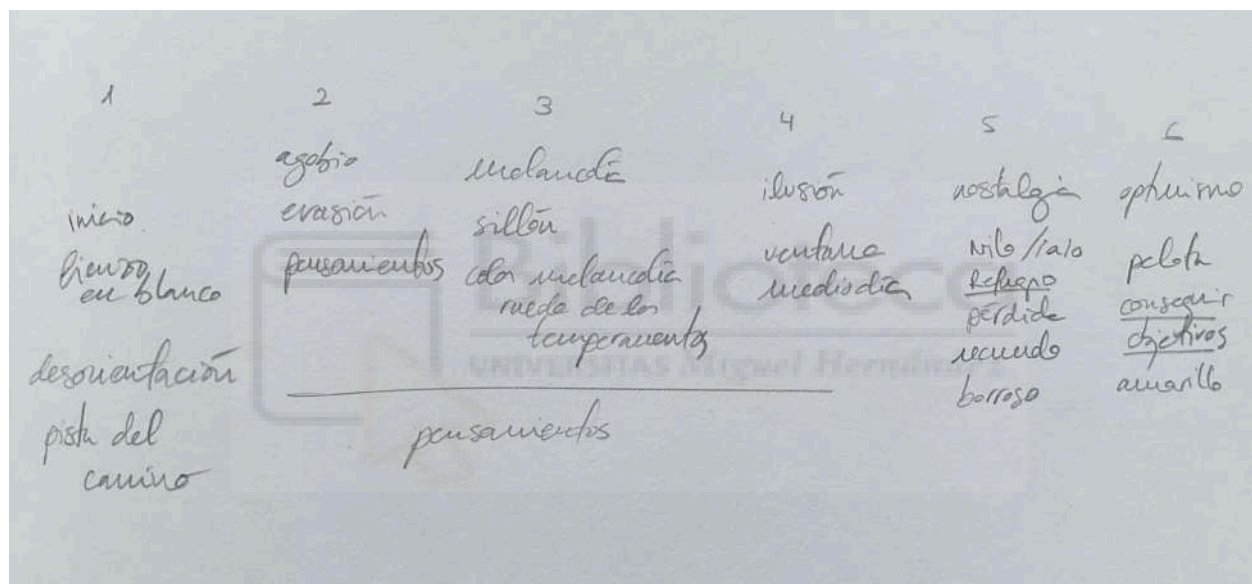 1
inicio
lienzo
en blanco
desorientación
pista del
camino
2
agobio
evasión
pensamientos
3
melancolía
sillón
color melancolía
rueda de los
temperamentos
pensamientos
4
ilusión
ventana
mediodía
5
nostalgia
Refugio
pérdida
recuerdo
borroso
6
optimismo
pelota
conseguir
objetivos
amarillo
Biblioteca
UNIVERSITAS Miguel Hernández